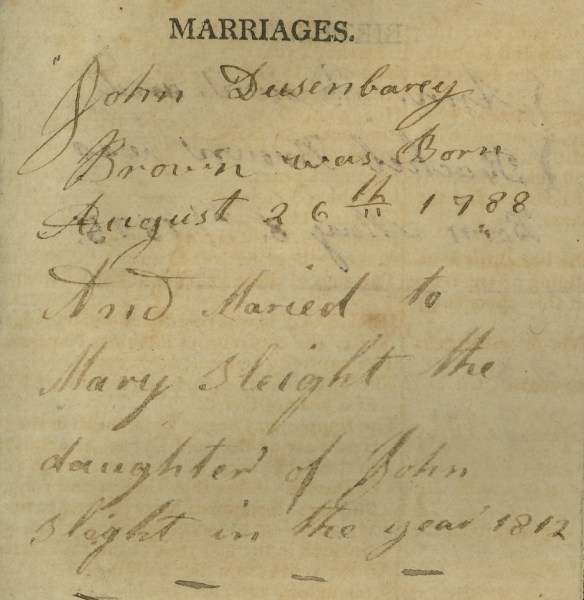 MARRIAGES.
John Dusenbarey
Brown was Born
August 26th 1788
And Maried to
Mary Sleight the
daughter of John
Sleight in the year 1812